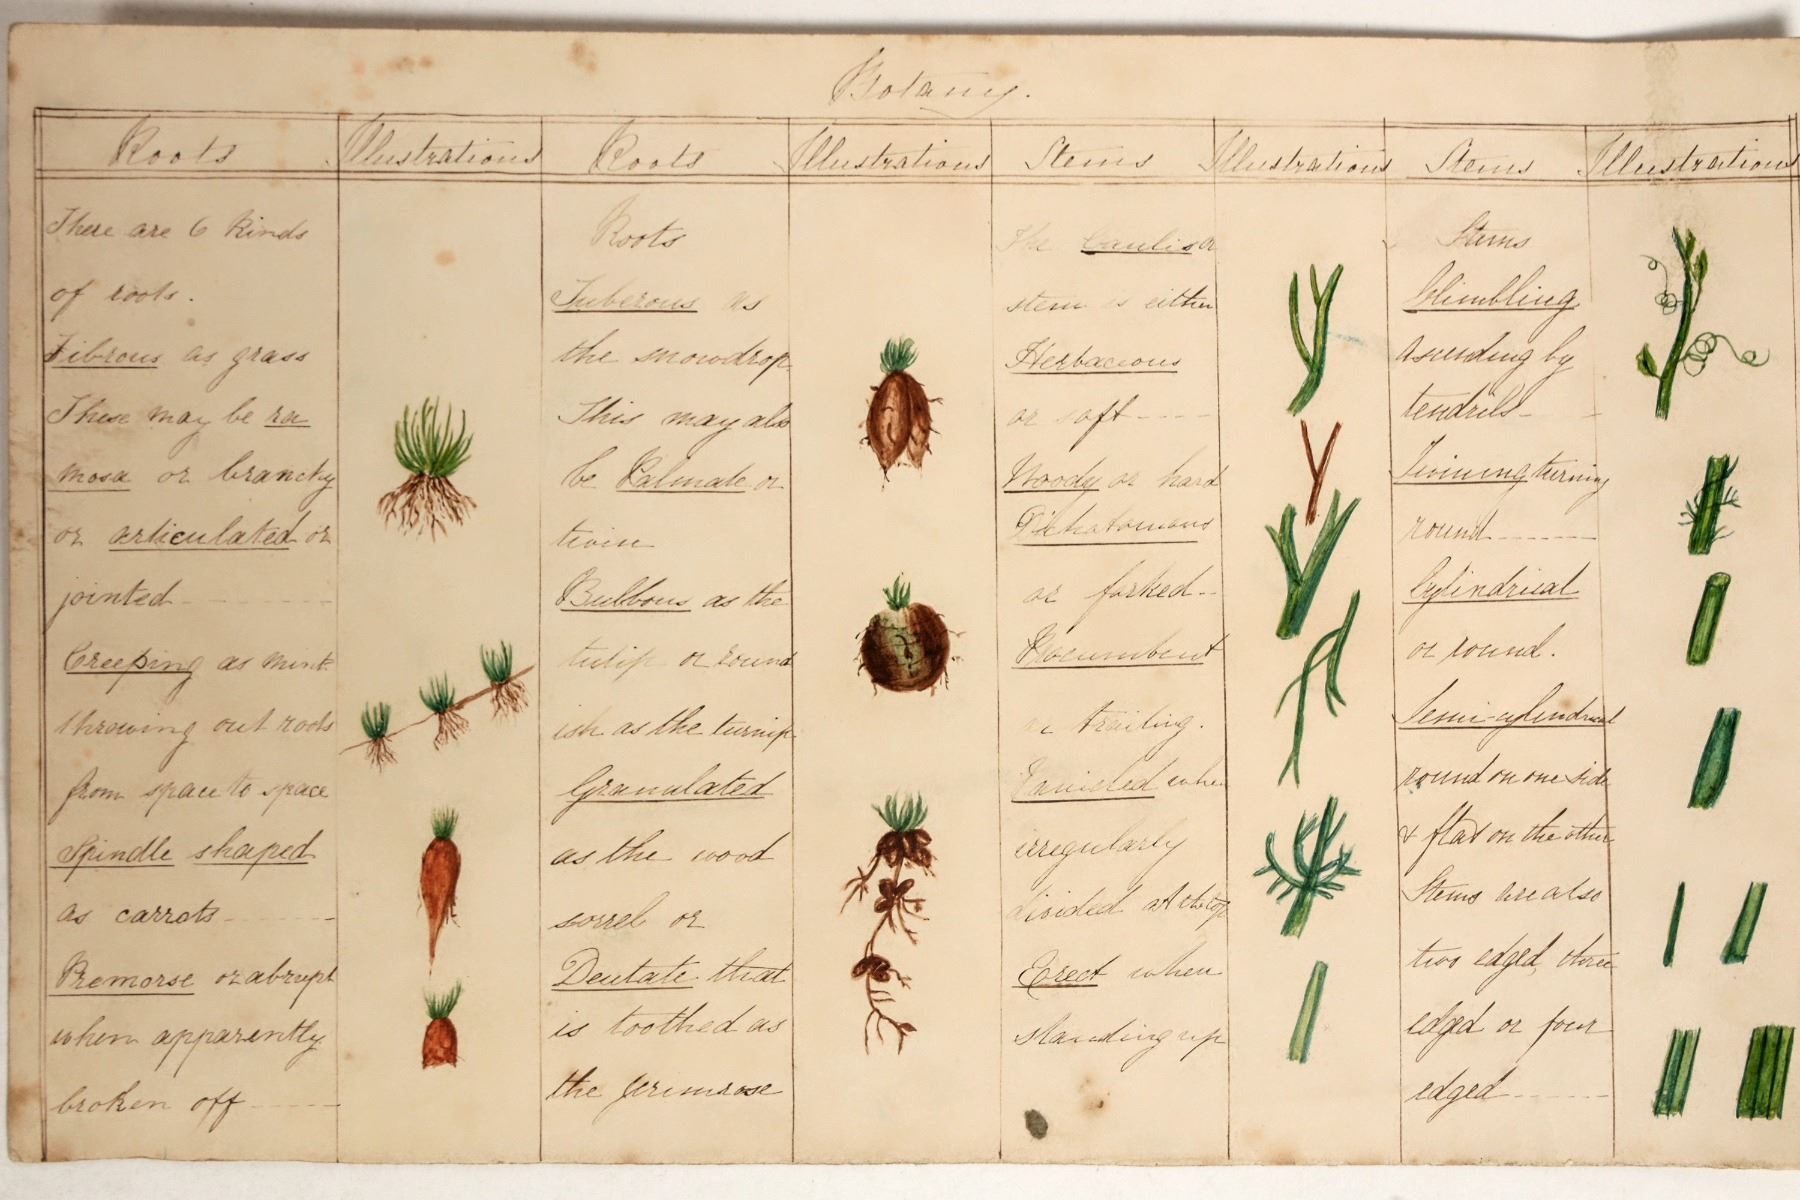 Botany.
Roots
Illustrations
Roots
Illustrations
Stems
Illustrations
Stems
Illustrations
There are 6 kinds
of roots.
Fibrous as grass
These may be ra
mosa or branchy
or articulated or
jointed
Creeping as mint
throwing out roots
from space to space
Spindle shaped
as carrots
Premorse or abrupt
when apparently
broken off
Roots
Tuberous as
the snowdrop
This may also
be Palmate or
twin
Bulbous as the
tulip or round
ish as the turnip
Granulated
as the wood
sorrel or
Dentate that
is toothed as
the primrose
The Caulis or
stem is either
Herbaceous
or soft
Woody or hard
Dichotomous
or forked
Procumbent
or trailing.
Panicled when
irregularly
divided at the top
Erect when
standing up
Stems
Climbling
ascending by
tendrils
Twining turning
round
Cylindrical
or round.
Semi-cylindrical
round on one side
& flat on the other
Stems are also
two edged, three
edged or four
edged